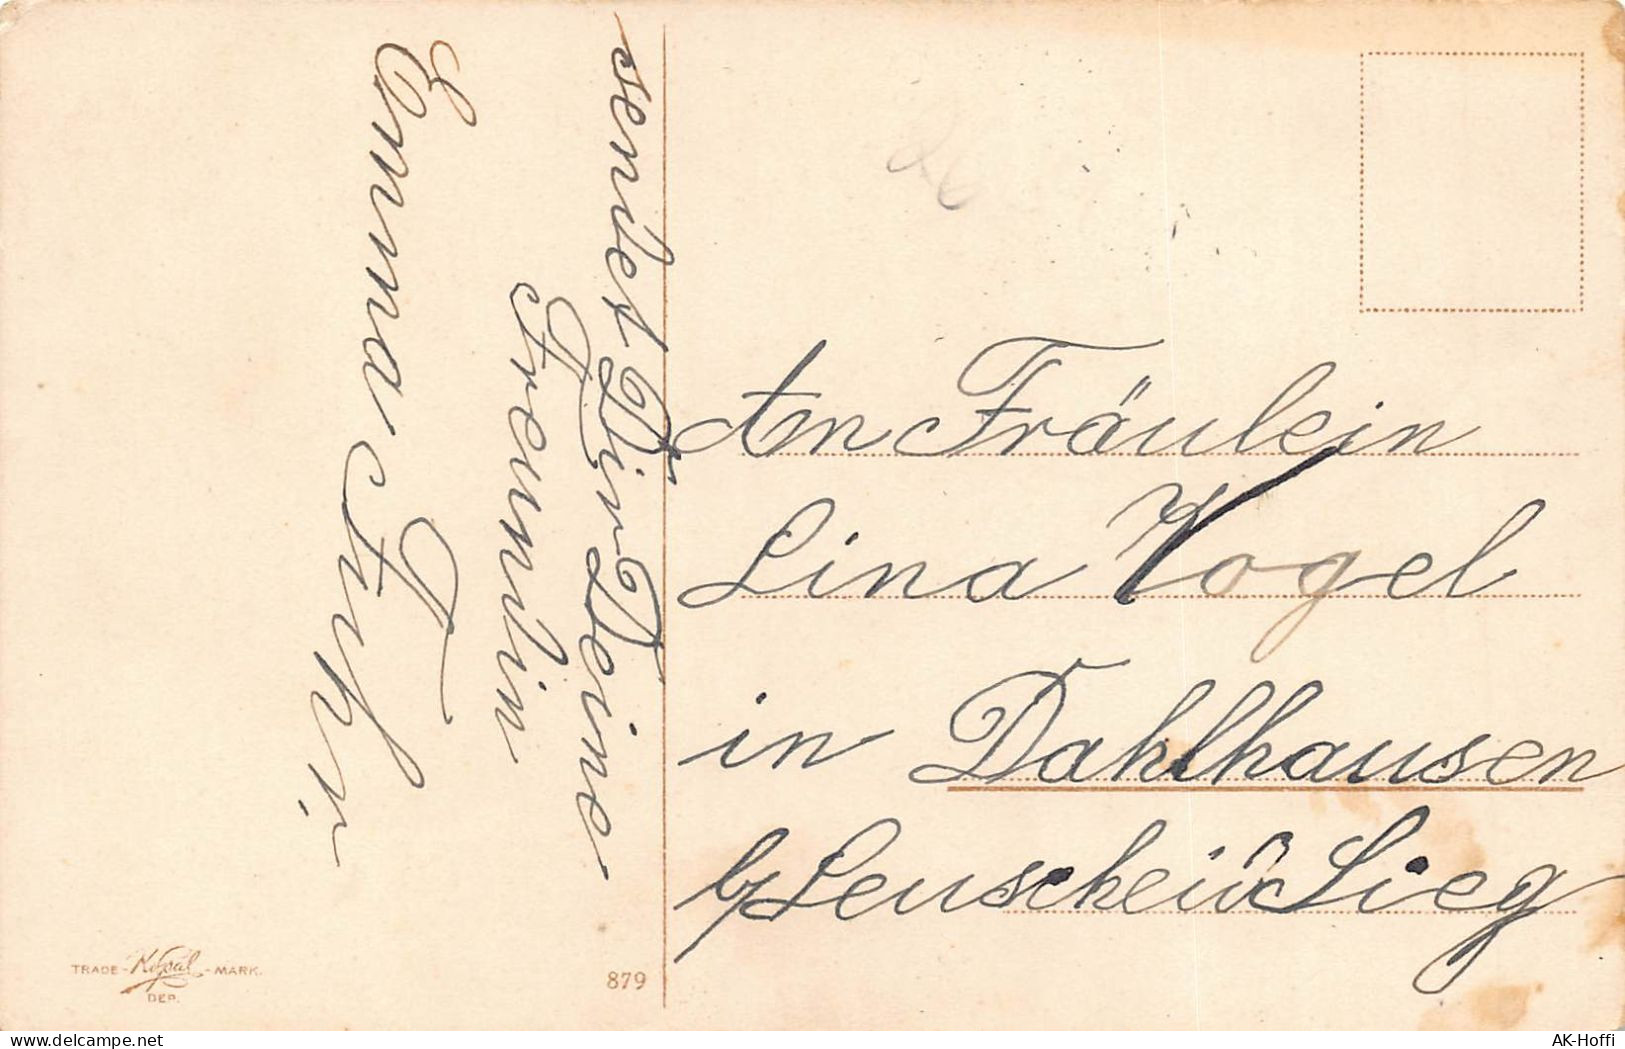 sendet Dir Deine
Freundin
Emma
An Fräulein
Lina Vogel
in Dahlhausen
b/Leuscheid Sieg
TRADE - - MARK.
DEP.
879
AK-Hoffi